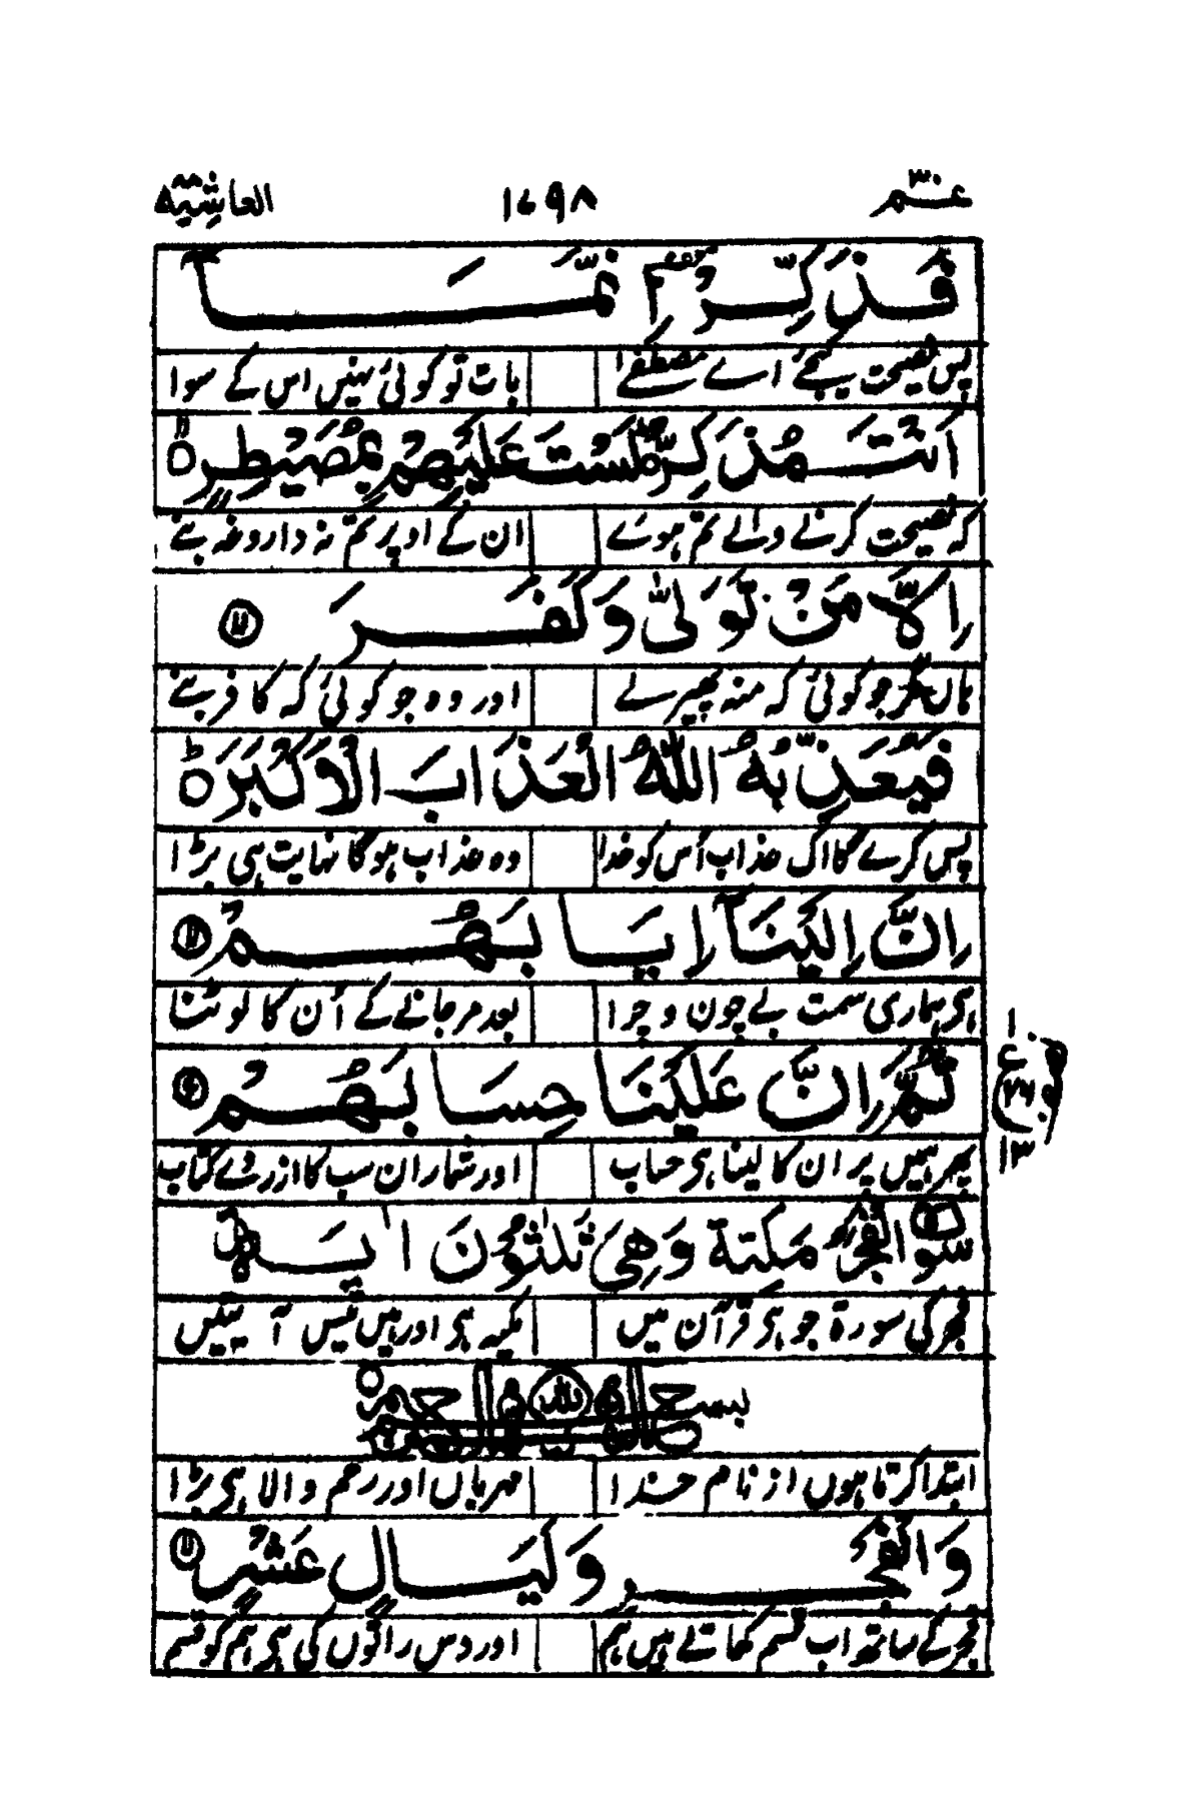 عم ٣٠ ١٦٩٨ الغاشية ٨٨
فَذَكِّرْ إِنَّمَا
پس نصیحت کیجئے اے مصطفےٰ بات تو کوئی نہیں اس کے سوا
اَنْتَ مُذَكِّرٌ لَسْتَ عَلَيْهِمْ بِمُصَيْطِرٍ
کہ نصیحت کرنے والے تم ہوئے ان کے اوپر تم نہ داروغہ بنے
اِلَّا مَنْ تَوَلّٰى وَكَفَرَ
ہاں مگر جو کوئی کہ منہ پھیر لے اور وہ جو کوئی کہ کافر بنے
فَيُعَذِّبُهُ اللّٰهُ الْعَذَابَ الْاَكْبَرَ
پس کرے گا اک عذاب اُس کو خدا وہ عذاب ہوگا نہایت ہی بڑا
اِنَّ اِلَيْنَآ اِيَابَهُمْ
ہی ہماری سمت بے چون و چرا بعد مر جانے کے اُن کا لوٹنا
ثُمَّ اِنَّ عَلَيْنَا حِسَابَهُمْ
پھر ہمیں پر ان کا لینا ہی حساب اور شمار ان سب کا از روئے کتاب
ع
٢٦
١٣
سورة الفجر مَكِّيَّةٌ وَهِيَ ثَلٰثُوْنَ اٰيَةً
فجر کی سورۃ جو ہی قرآن میں مکیہ ہی اور ہیں تیس آیتیں
بسم الله الرحمن الرحيم
ابتدا کرتا ہوں از نام خدا مہرباں اور رحم والا ہی بڑا
وَالْفَجْرِ وَلَيَالٍ عَشْرٍ
فجر کے ساتھ اب قسم کھاتے ہیں ہم اور دس راتوں کی ہی ہم کو قسم